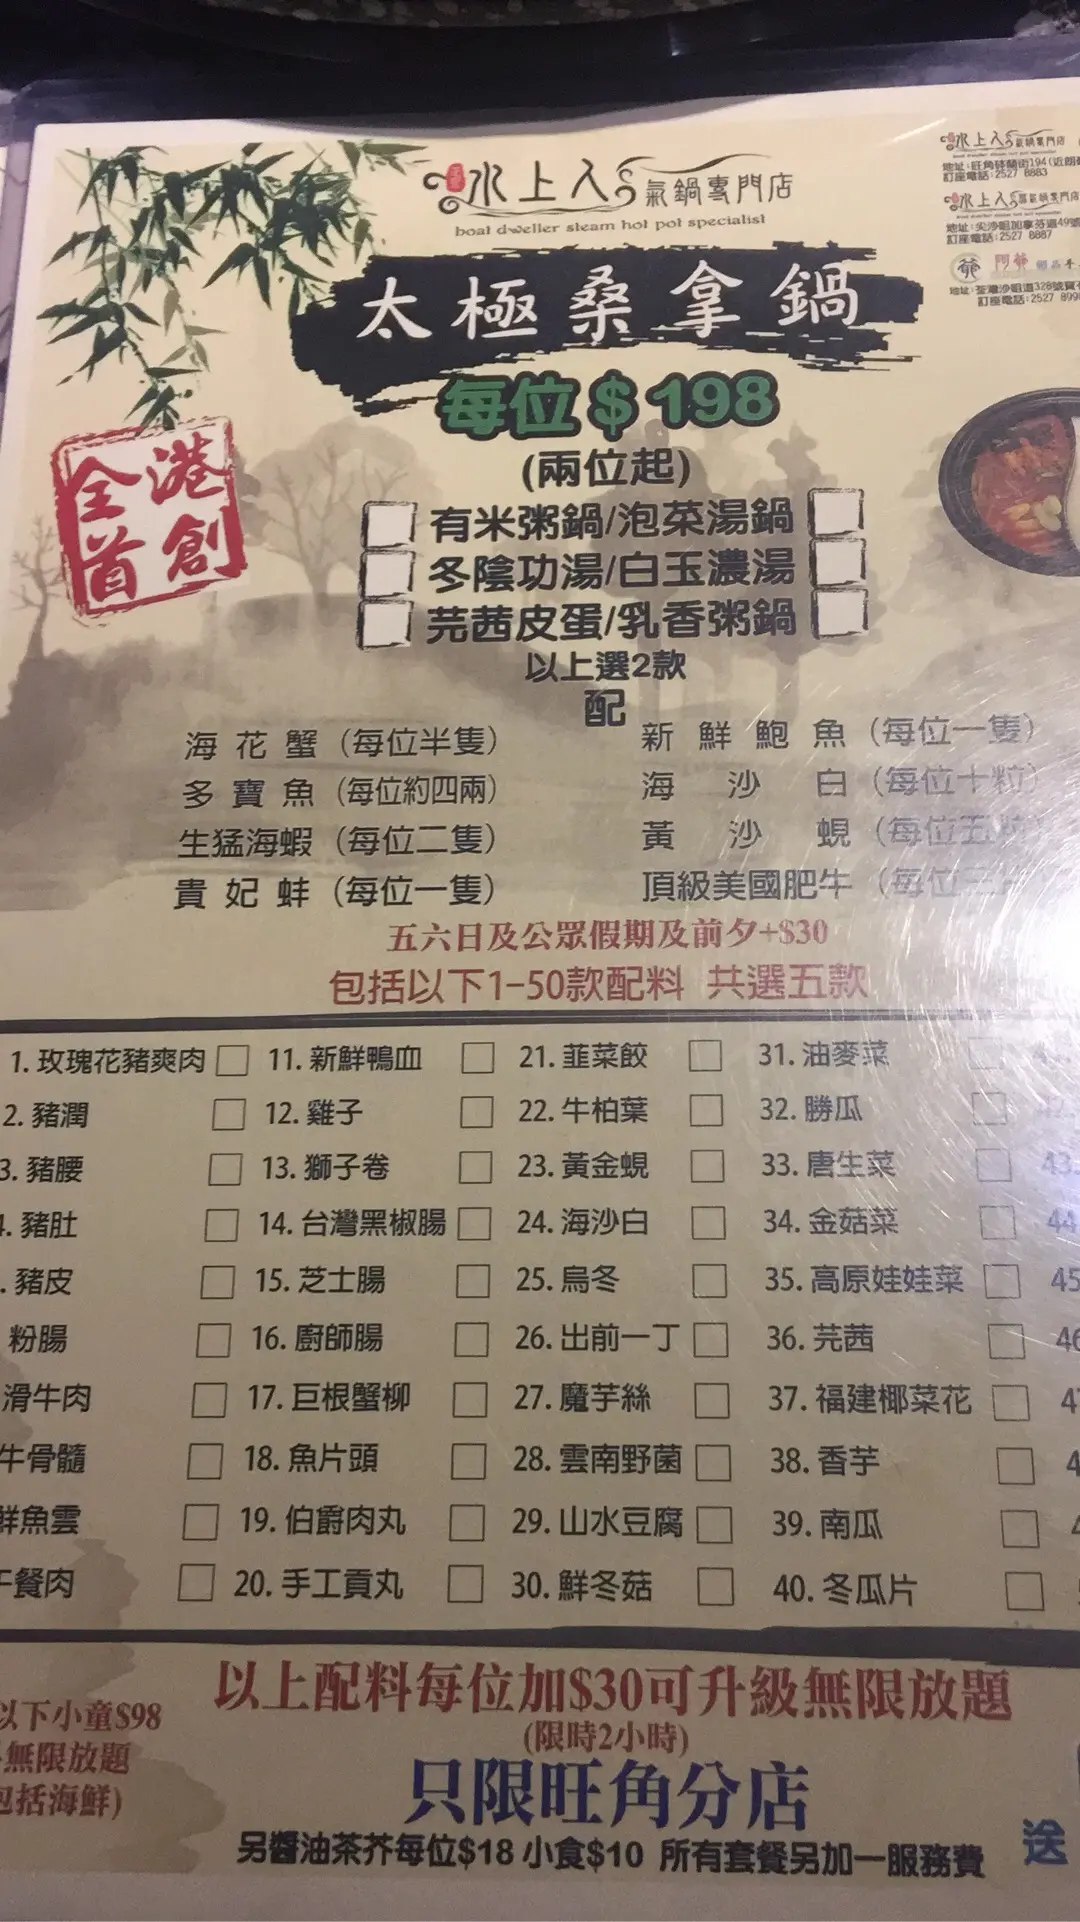 水上人 氣鍋專門店
boat dweller steam hot pot specialist
水上人 氣鍋專門店
地址:旺角砵蘭街194(近朗
訂座電話:2527 8883
水上人
地址:尖沙咀加拿芬道49號
訂座電話:2527 8887
爺 阿爺
地址:荃灣沙咀道328號寶
訂座電話:2527 899
太極桑拿鍋
每位$198
(兩位起)
全港首創
有米粥鍋/泡菜湯鍋
冬陰功湯/白玉濃湯
芫茜皮蛋/乳香粥鍋
以上選2款
配
海花蟹 (每位半隻) 新鮮鮑魚 (每位一隻)
多寶魚 (每位約四兩) 海沙白 (每位十粒)
生猛海蝦 (每位二隻) 黃沙蜆 (每位五粒)
貴妃蚌 (每位一隻) 頂級美國肥牛 (每位三
五六日及公眾假期及前夕+$30
包括以下1-50款配料 共選五款
1. 玫瑰花豬爽肉 11. 新鮮鴨血 21. 韮菜餃 31. 油麥菜
2. 豬潤 12. 雞子 22. 牛柏葉 32. 勝瓜 42
3. 豬腰 13. 獅子卷 23. 黃金蜆 33. 唐生菜 43.
4. 豬肚 14. 台灣黑椒腸 24. 海沙白 34. 金菇菜 44
. 豬皮 15. 芝士腸 25. 烏冬 35. 高原娃娃菜 45
粉腸 16. 廚師腸 26. 出前一丁 36. 芫茜 46
滑牛肉 17. 巨根蟹柳 27. 魔芋絲 37. 福建椰菜花 47
牛骨髓 18. 魚片頭 28. 雲南野菌 38. 香芋 4
鮮魚雲 19. 伯爵肉丸 29. 山水豆腐 39. 南瓜 4
午餐肉 20. 手工貢丸 30. 鮮冬菇 40. 冬瓜片
以上配料每位加$30可升級無限放題
(限時2小時)
只限旺角分店
以下小童$98
無限放題
包括海鮮)
另醬油茶芥每位$18 小食$10 所有套餐另加一服務費
送